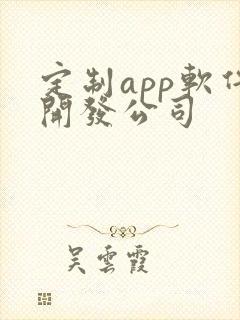 定制app軟件
開發公司
吴雲霞